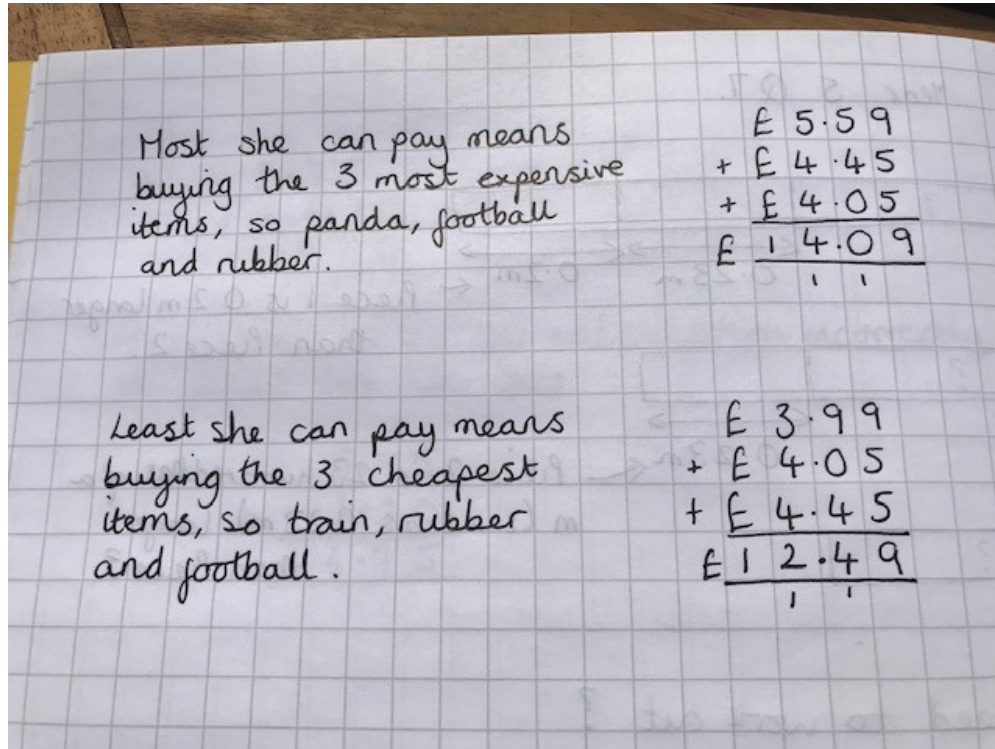 Most she can pay means
buying the 3 most expensive
items, so panda, football
and rubber.
£ 5.59
+ £ 4.45
+ £ 4.05
£ 14.09
1 1
Least she can pay means
buying the 3 cheapest
items, so train, rubber
and football.
£ 3.99
+ £ 4.05
+ £ 4.45
£ 12.49
1 1